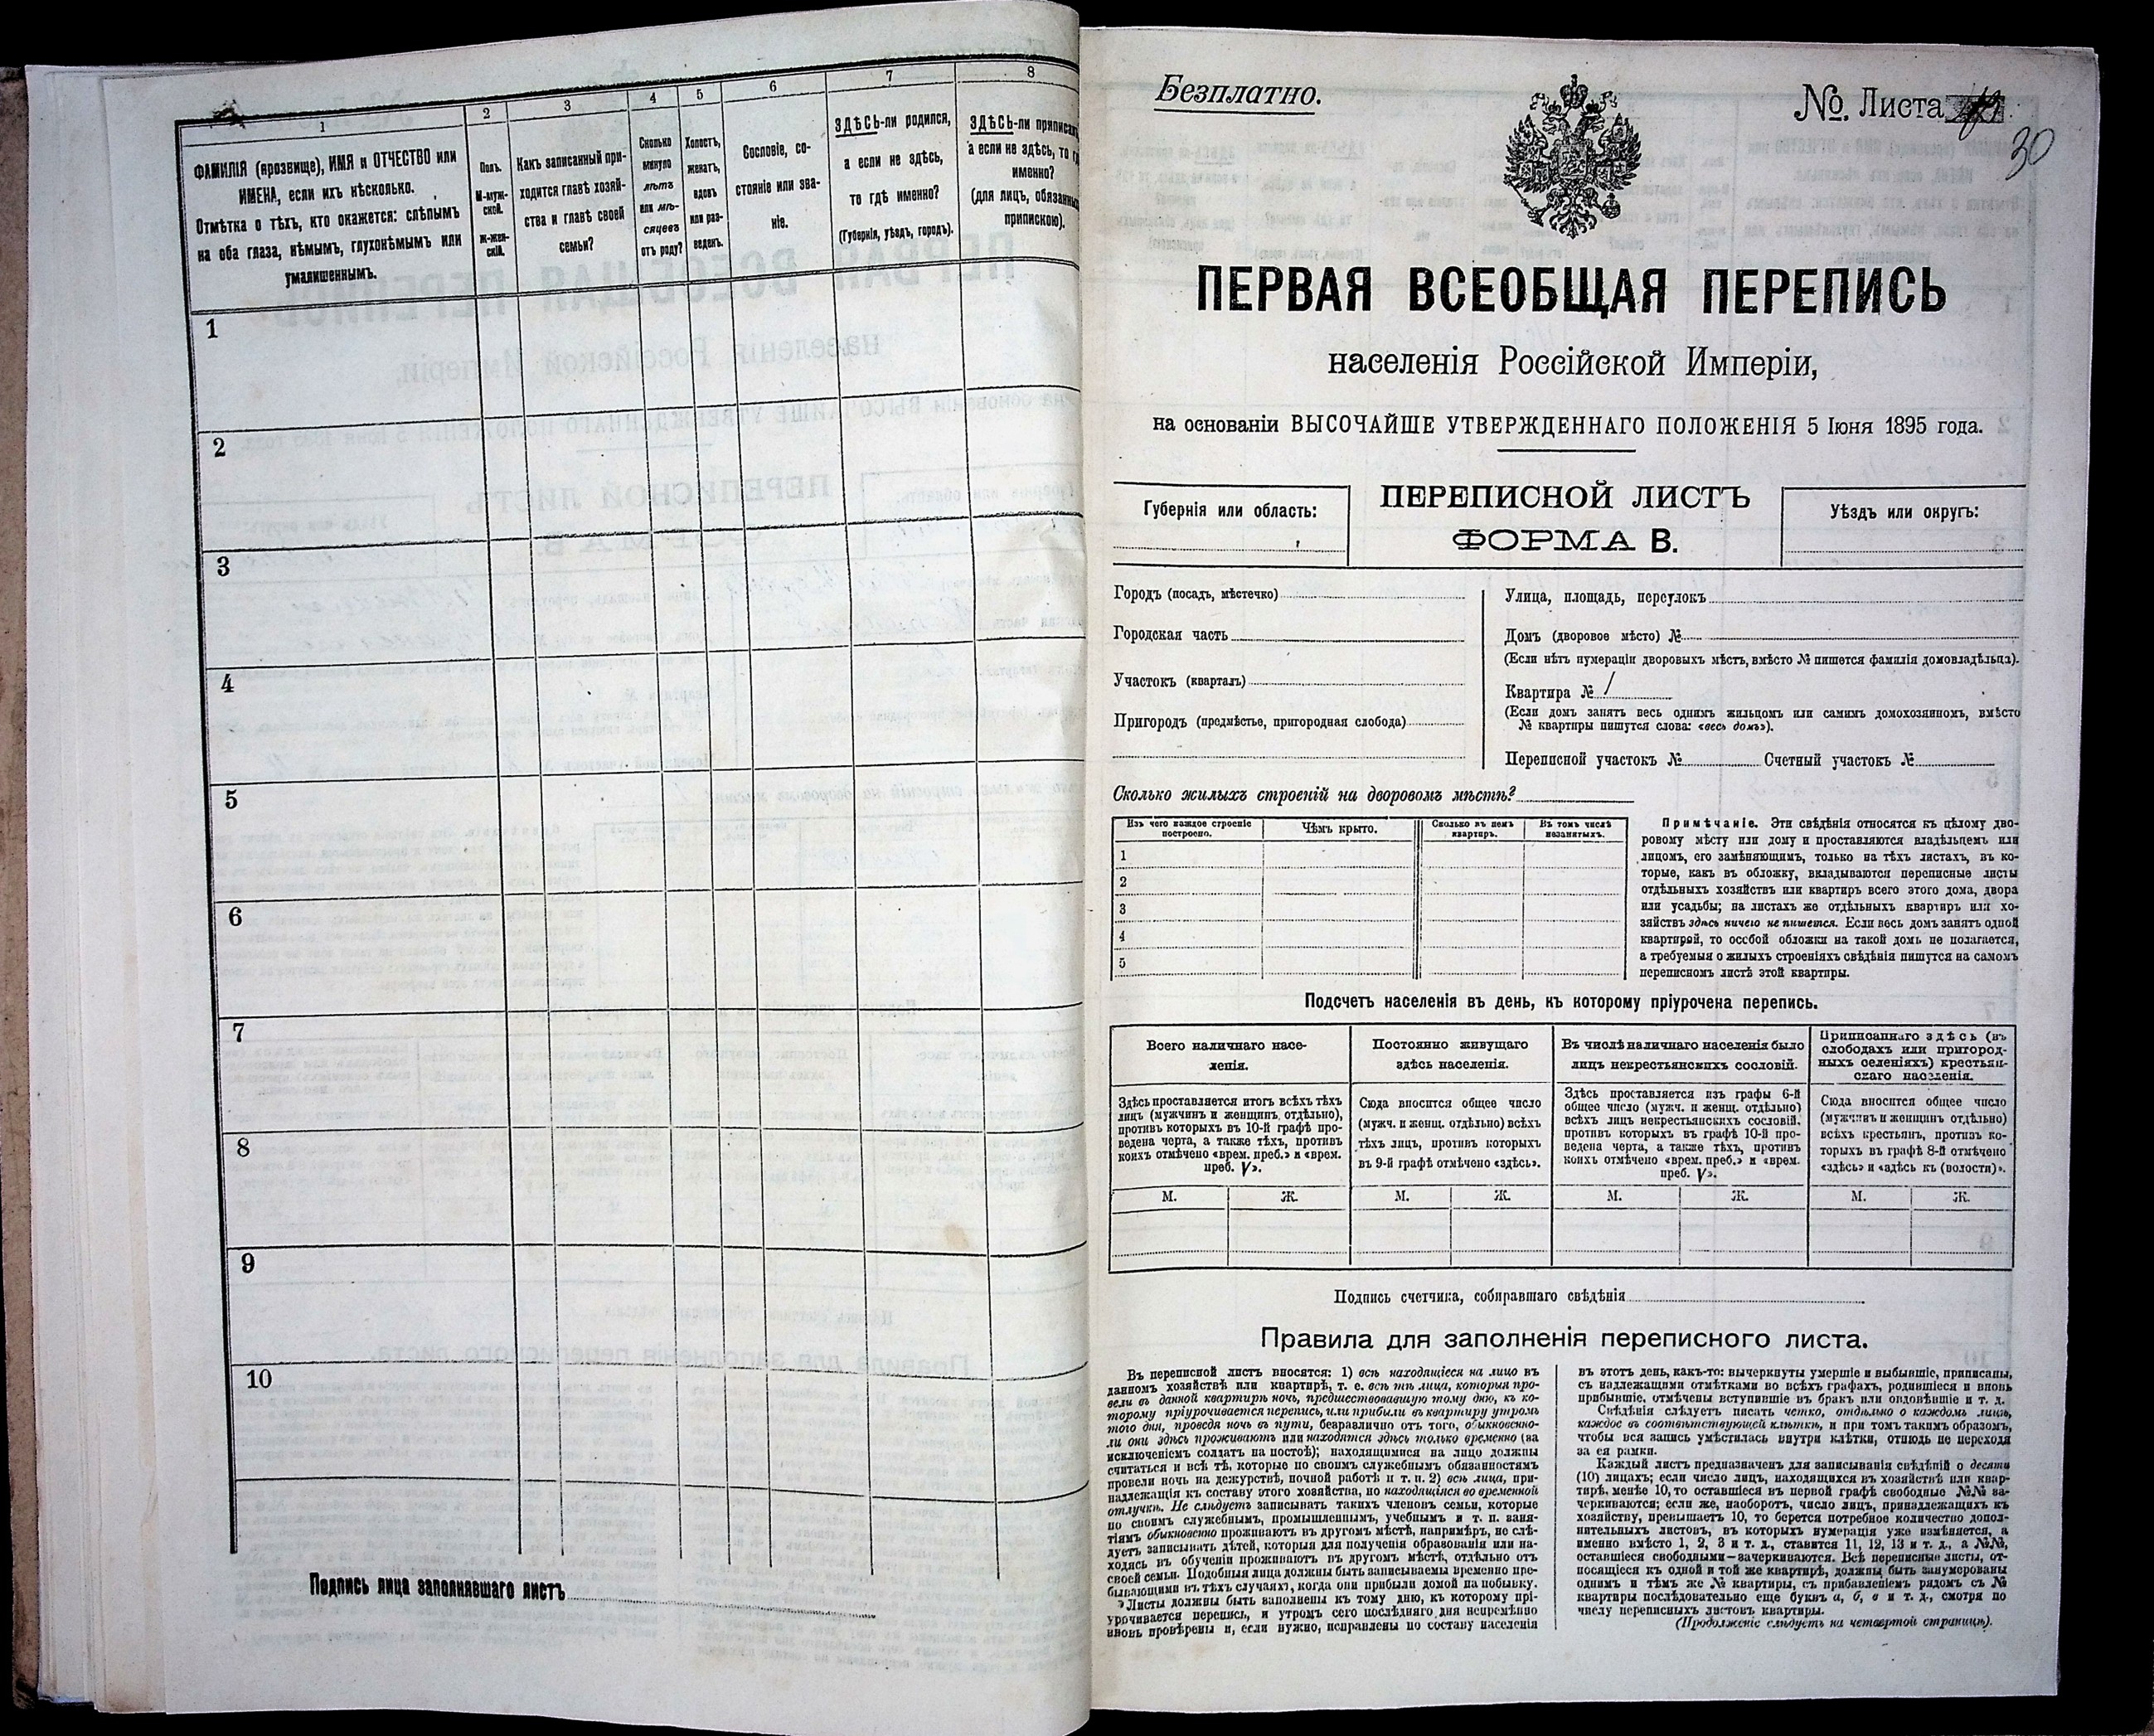 1
2
3
4
5
6
7
8
ФАМИЛІЯ (прозвище), ИМЯ и ОТЧЕСТВО или
ИМЕНА, если ихъ нѣсколько.
Отмѣтка о тѣхъ, кто окажется: слѣпымъ
на оба глаза, нѣмымъ, глухонѣмымъ или
умалишеннымъ.
Полъ.
М-муж-
ской.
Ж-жен-
скій.
Какъ записанный при-
ходится главѣ хозяй-
ства и главѣ своей
семьи?
Сколько
минуло
лѣтъ
или мѣ-
сяцевъ
отъ роду?
Холостъ,
женатъ,
вдовъ
или раз-
веденъ.
Сословіе, со-
стояніе или зва-
ніе.
ЗДѢСЬ-ли родился,
а если не здѣсь,
то гдѣ именно?
(Губернія, уѣздъ, городъ).
ЗДѢСЬ-ли приписанъ
а если не здѣсь, то гд
именно?
(для лицъ, обязанныхъ
припискою).
1
2
3
4
5
6
7
8
9
10
Подпись лица заполнявшаго листъ
Безплатно.
№. Листа
30
ПЕРВАЯ ВСЕОБЩАЯ ПЕРЕПИСЬ
населенія Россійской Имперіи,
на основаніи ВЫСОЧАЙШЕ УТВЕРЖДЕННАГО ПОЛОЖЕНІЯ 5 Іюня 1895 года.
Губернія или область:
ПЕРЕПИСНОЙ ЛИСТЪ
ФОРМА В.
Уѣздъ или округъ:
Городъ (посадъ, мѣстечко)
Городская часть
Участокъ (кварталъ)
Пригородъ (предмѣстье, пригородная слобода)
Улица, площадь, переулокъ
Домъ (дворовое мѣсто) №
(Если нѣтъ нумераціи дворовыхъ мѣстъ, вмѣсто № пишется фамилія домовладѣльца).
Квартира № 1
(Если домъ занятъ весь однимъ жильцомъ или самимъ домохозяиномъ, вмѣсто
№ квартиры пишутся слова: «весь домъ»).
Переписной участокъ № Счетный участокъ №
Сколько жилыхъ строеній на дворовомъ мѣстѣ?
Изъ чего каждое строеніе
построено.
Чѣмъ крыто.
Сколько въ немъ
квартиръ.
Въ томъ числѣ
незанятыхъ.
1
2
3
4
5
Примѣчаніе. Эти свѣдѣнія относятся къ цѣлому дво-
ровому мѣсту или дому и проставляются владѣльцемъ или
лицомъ, его замѣняющимъ, только на тѣхъ листахъ, въ ко-
торые, какъ въ обложку, вкладываются переписные листы
отдѣльныхъ хозяйствъ или квартиръ всего этого дома, двора
или усадьбы; на листахъ же отдѣльныхъ квартиръ или хо-
зяйствъ здѣсь ничего не пишется. Если весь домъ занятъ одной
квартирой, то особой обложки на такой домъ не полагается,
а требуемыя о жилыхъ строеніяхъ свѣдѣнія пишутся на самомъ
переписномъ листѣ этой квартиры.
Подсчетъ населенія въ день, къ которому пріурочена перепись.
Всего наличнаго насе-
ленія.
Здѣсь проставляется итогъ всѣхъ тѣхъ
лицъ (мужчинъ и женщинъ отдѣльно),
противъ которыхъ въ 10-й графѣ про-
ведена черта, а также тѣхъ, противъ
коихъ отмѣчено «врем. преб.» и «врем.
преб. V».
М. Ж.
Постоянно живущаго
здѣсь населенія.
Сюда вносится общее число
(мужч. и женщ. отдѣльно) всѣхъ
тѣхъ лицъ, противъ которыхъ
въ 9-й графѣ отмѣчено «здѣсь».
М. Ж.
Въ числѣ наличнаго населенія было
лицъ некрестьянскихъ сословій.
Здѣсь проставляется изъ графы 6-й
общее число (мужч. и женщ. отдѣльно)
всѣхъ лицъ некрестьянскихъ сословій,
противъ которыхъ въ графѣ 10-й про-
ведена черта, а также тѣхъ, противъ
коихъ отмѣчено «врем. преб.» и «врем.
преб. V».
М. Ж.
Приписаннаго здѣсь (въ
слободахъ или пригород-
ныхъ селеніяхъ) крестьян-
скаго населенія.
Сюда вносится общее число
(мужчинъ и женщинъ отдѣльно)
всѣхъ крестьянъ, противъ ко-
торыхъ въ графѣ 8-й отмѣчено
«здѣсь» и «здѣсь къ (волости)».
М. Ж.
Подпись счетчика, собиравшаго свѣдѣнія
Правила для заполненія переписного листа.
Въ переписной листъ вносятся: 1) всѣ находящіеся на лицо въ
данномъ хозяйствѣ или квартирѣ, т. е. всѣ тѣ лица, которыя про-
вели въ данной квартирѣ ночь, предшествовавшую тому дню, къ ко-
торому пріурочивается перепись, или прибыли въ квартиру утромъ
того дня, проведя ночь въ пути, безразлично отъ того, обыкновенно-
ли они здѣсь проживаютъ или находятся здѣсь только временно (за
исключеніемъ солдатъ на постоѣ); находящимися на лицо должны
считаться и всѣ тѣ, которые по своимъ служебнымъ обязанностямъ
провели ночь на дежурствѣ, ночной работѣ и т. п. 2) всѣ лица, при-
надлежащія къ составу этого хозяйства, но находящіяся во временной
отлучкѣ. Не слѣдуетъ записывать такихъ членовъ семьи, которые
по своимъ служебнымъ, промышленнымъ, учебнымъ и т. п. заня-
тіямъ обыкновенно проживаютъ въ другомъ мѣстѣ, напримѣръ, не слѣ-
дуетъ записывать дѣтей, которыя для полученія образованія или на-
ходясь въ обученіи проживаютъ въ другомъ мѣстѣ, отдѣльно отъ
своей семьи. Подобныя лица должны быть записываемы временно пре-
бывающими въ тѣхъ случаяхъ, когда они прибыли домой на побывку.
Листы должны быть заполнены къ тому дню, къ которому прі-
урочивается перепись, и утромъ сего послѣдняго дня непремѣнно
вновь провѣрены и, если нужно, исправлены по составу населенія
въ этотъ день, какъ-то: вычеркнуты умершіе и выбывшіе, приписаны,
съ надлежащими отмѣтками во всѣхъ графахъ, родившіеся и вновь
прибывшіе, отмѣчены вступившіе въ бракъ или овдовѣвшіе и т. д.
Свѣдѣнія слѣдуетъ писать четко, отдѣльно о каждомъ лицѣ,
каждое въ соотвѣтствующей клѣткѣ, и при томъ такимъ образомъ,
чтобы вся запись умѣстилась внутри клѣтки, отнюдь не переходя
за ея рамки.
Каждый листъ предназначенъ для записыванія свѣдѣній о десяти
(10) лицахъ; если число лицъ, находящихся въ хозяйствѣ или квар-
тирѣ, менѣе 10, то оставшіеся въ первой графѣ свободные №№ за-
черкиваются; если же, наоборотъ, число лицъ, принадлежащихъ къ
хозяйству, превышаетъ 10, то берется потребное количество допол-
нительныхъ листовъ, въ которыхъ нумерація уже измѣняется, а
именно вмѣсто 1, 2, 3 и т. д., ставится 11, 12, 13 и т. д., а №№,
оставшіеся свободными—зачеркиваются. Всѣ переписные листы, от-
носящіеся къ одной и той же квартирѣ, должны быть занумерованы
однимъ и тѣмъ же № квартиры, съ прибавленіемъ рядомъ съ №
квартиры послѣдовательно еще буквъ а, б, в и т. д., смотря по
числу переписныхъ листовъ квартиры.
(Продолженіе слѣдуетъ на четвертой страницѣ).